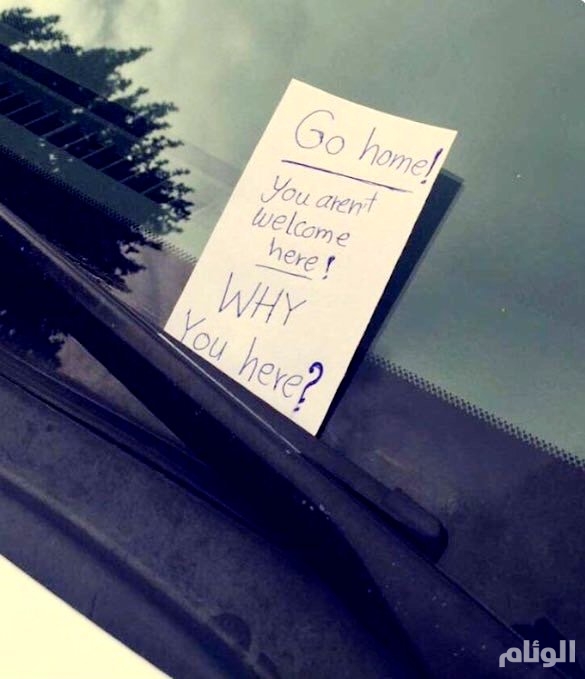 Go home!
You aren't
welcome
here!
WHY
You here?
الوئام